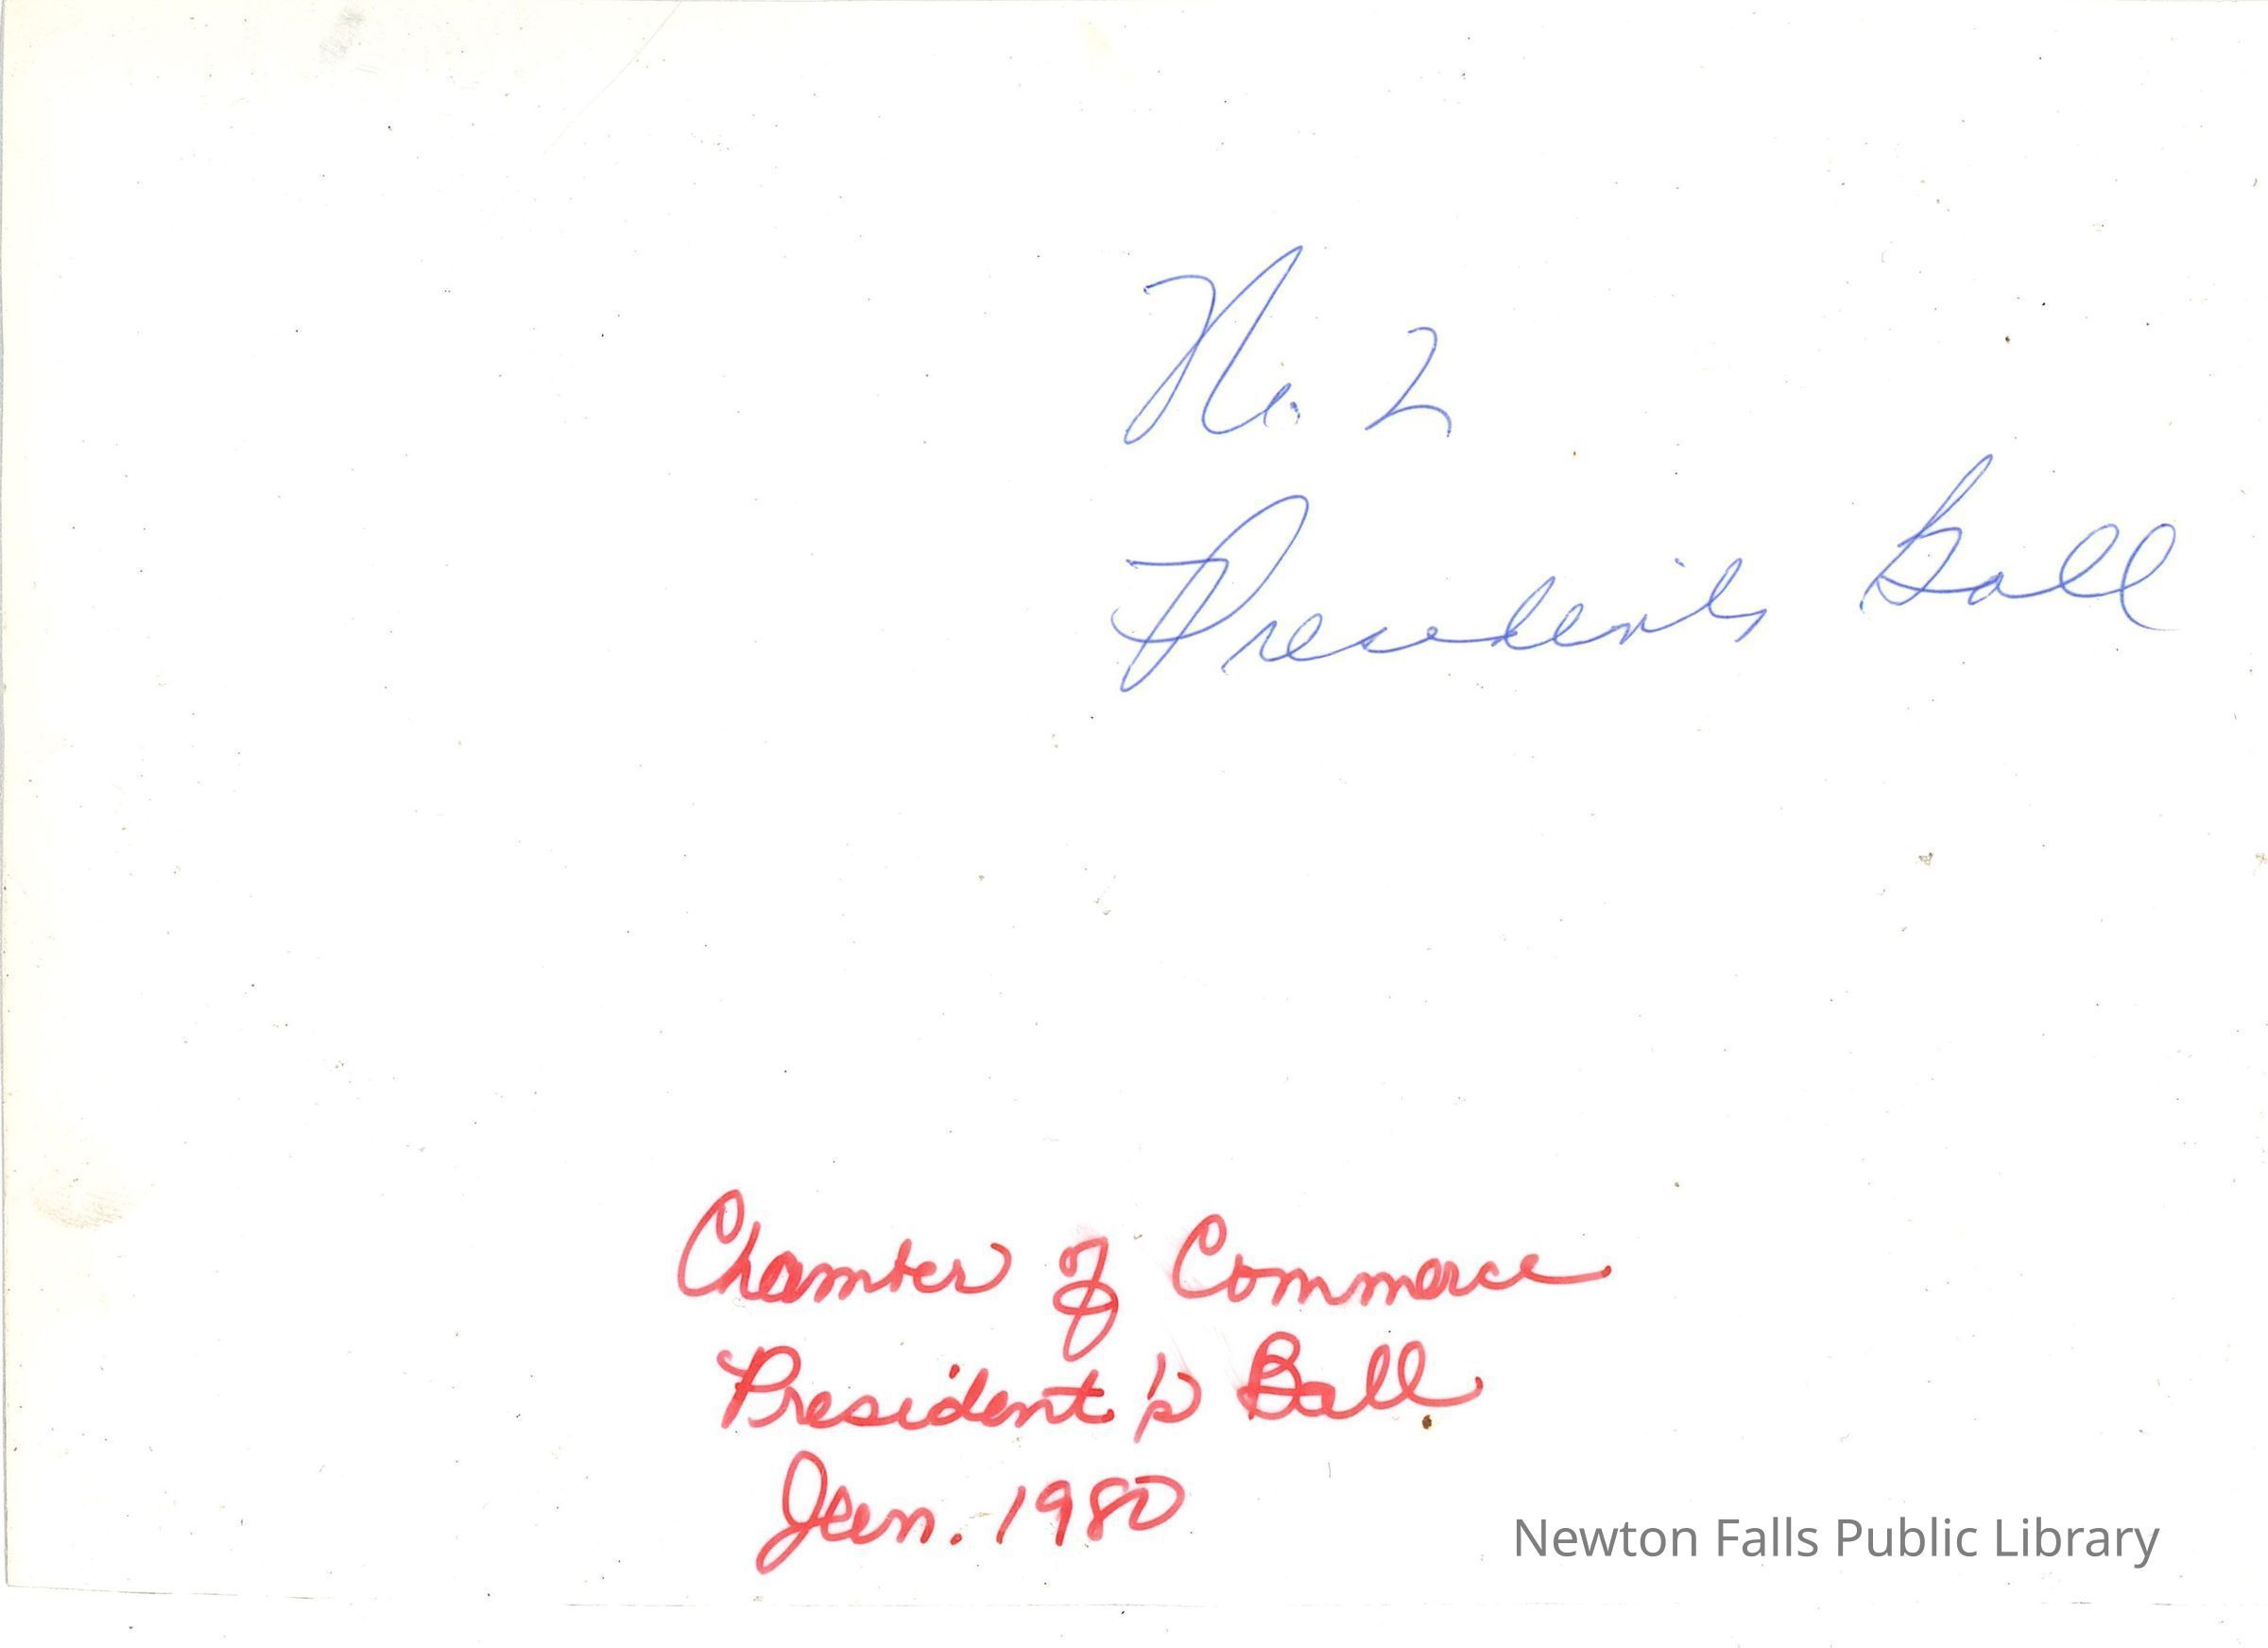 No. 2
Presidents Ball
Chamber of Commerce
President's Ball
Jan. 1980
Newton Falls Public Library